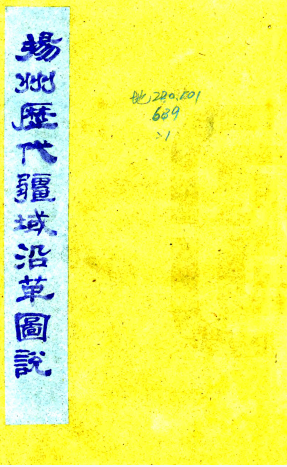 揚州歷代疆域沿革圖說
地290.501
639
:1